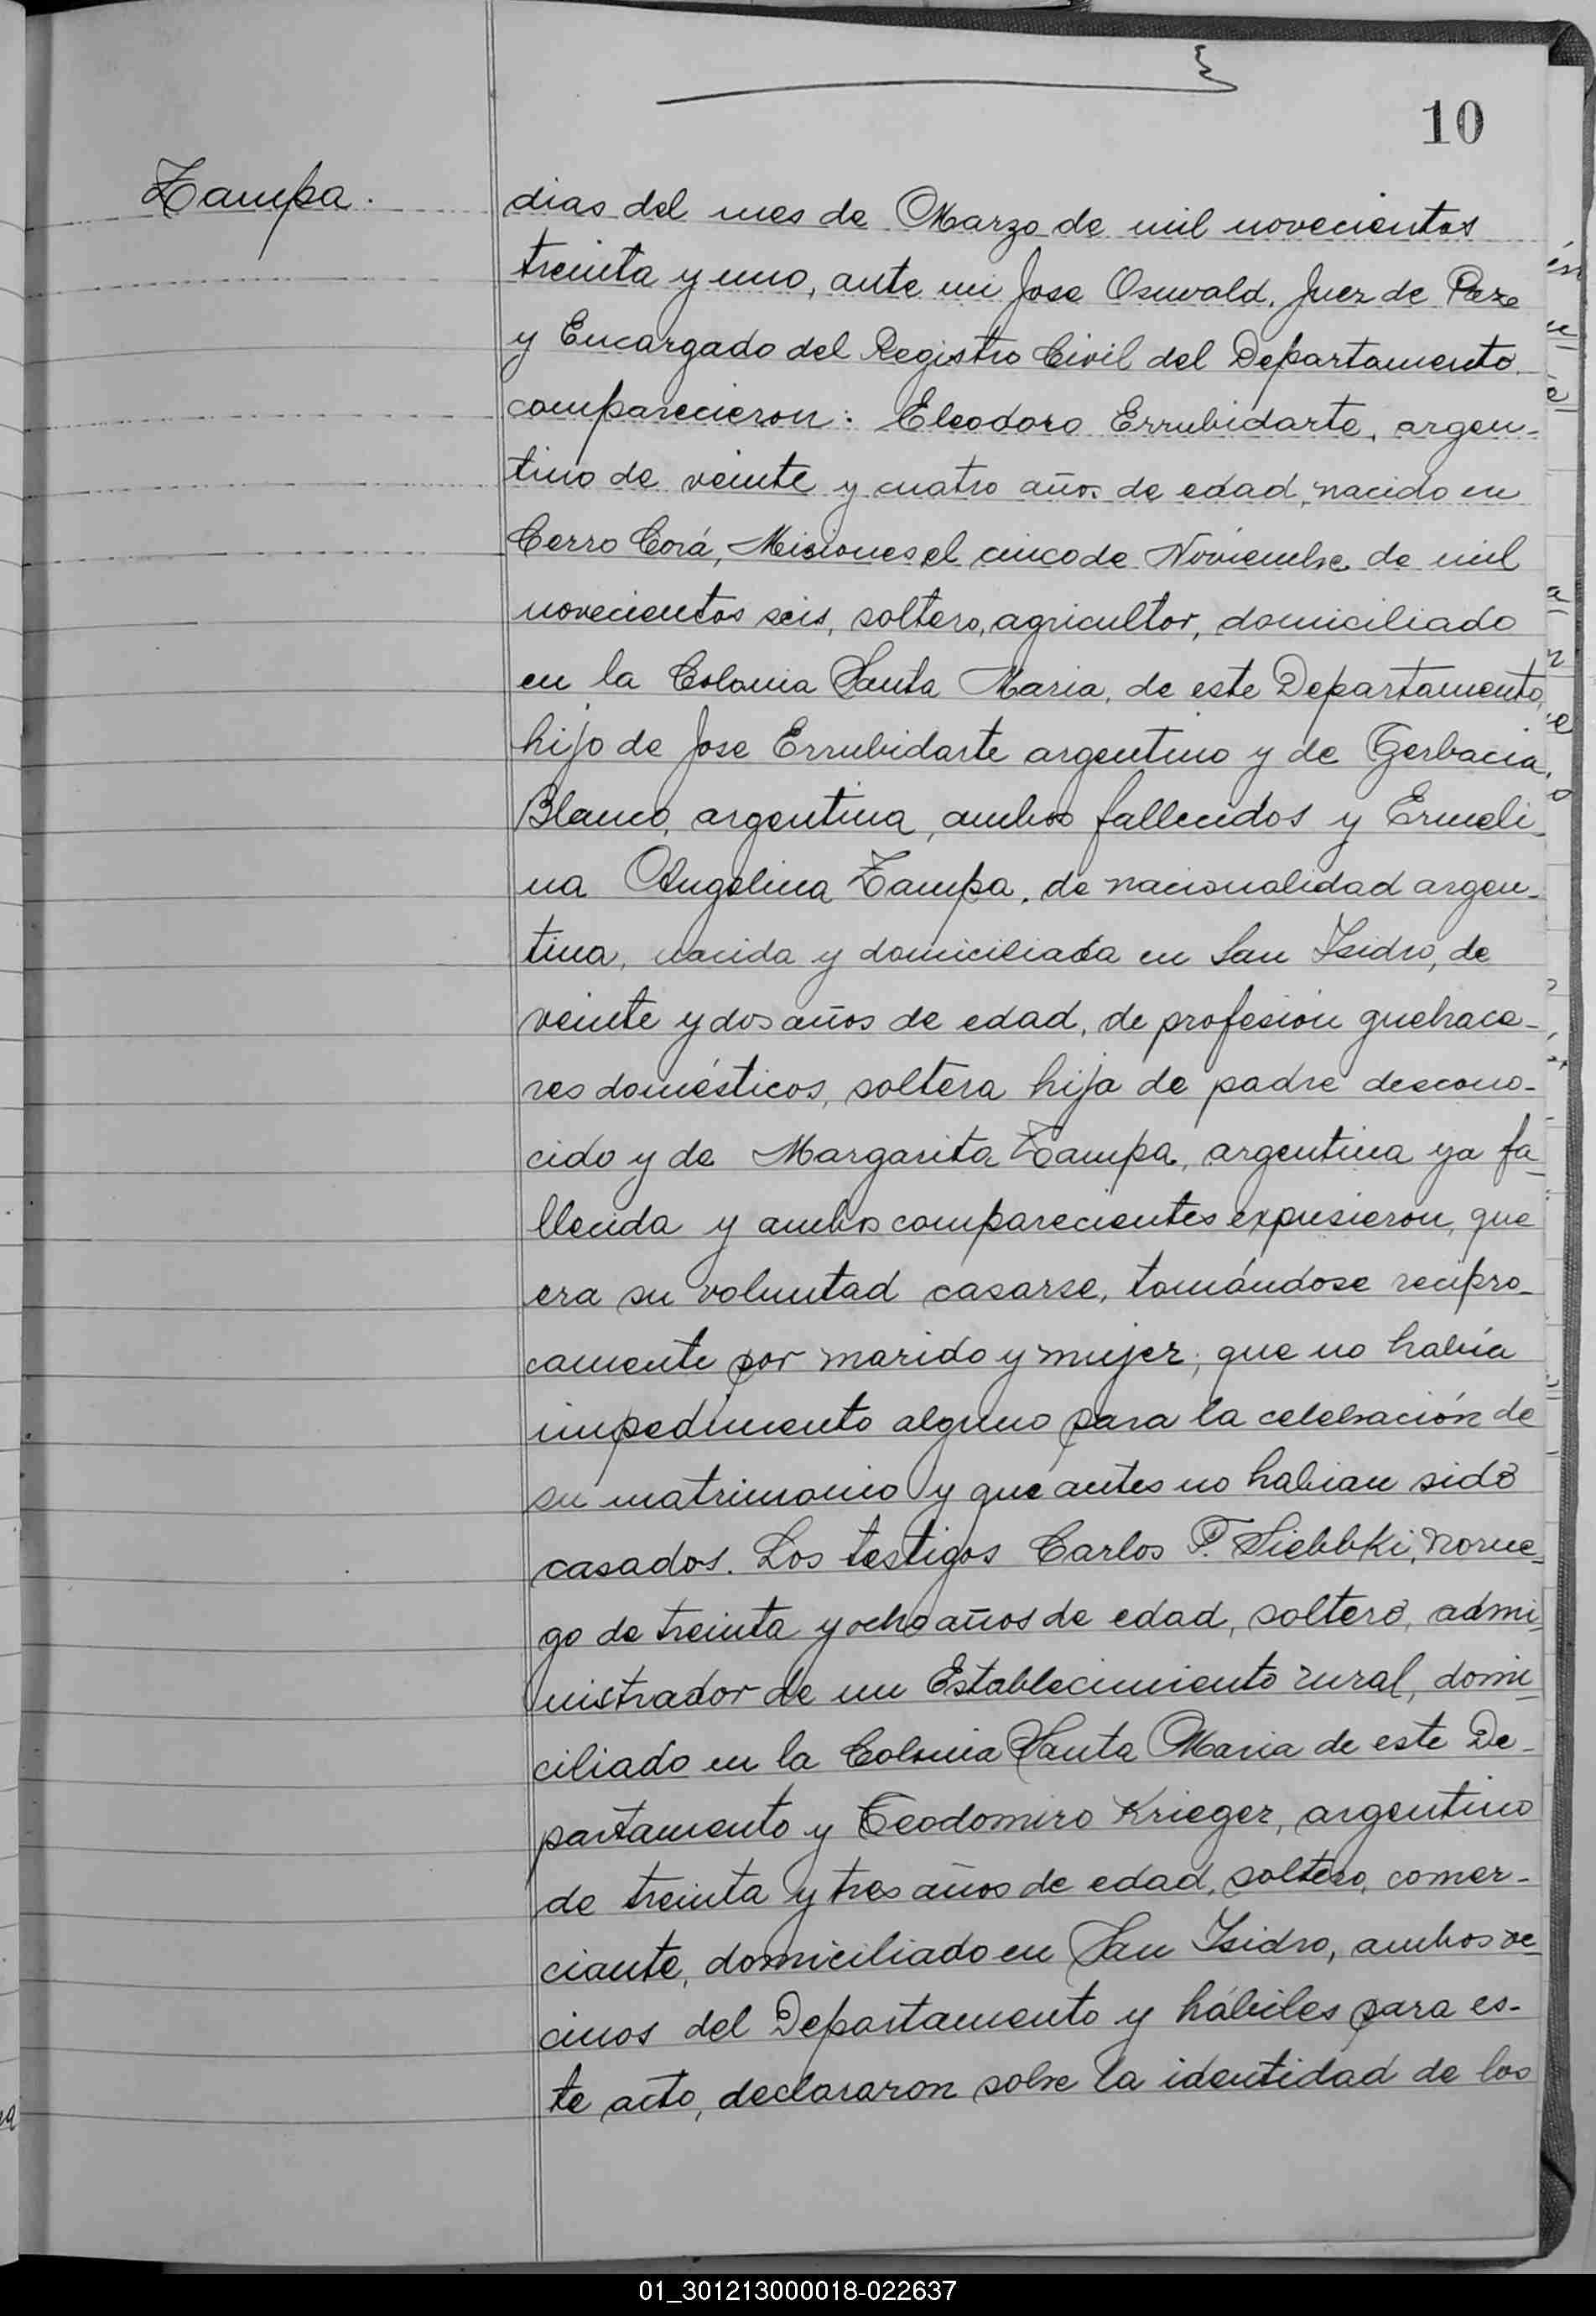 10
Zampa.
dias del mes de Marzo de mil novecientos
treinta y uno, ante mi Jose Oswald, Juez de Paz
y Encargado del Registro Civil del Departamento
comparecieron: Eleodoro Errubidarte, argen-
tino de veinte y cuatro años de edad, nacido en
Cerro Corá, Misiones el cinco de Noviembre de mil
novecientos seis, soltero, agricultor, domiciliado
en la Colonia Santa Maria, de este Departamento,
hijo de Jose Errubidarte argentino y de Gerbacia
Blanco, argentina, ambos fallecidos y Ermeli-
na Angelina Zampa, de nacionalidad argen-
tina, nacida y domiciliada en San Isidro, de
veinte y dos años de edad, de profesión quehace-
res domésticos, soltera hija de padre descono-
cido y de Margarita Zampa, argentina ya fa-
llecida y ambos comparecientes expusieron, que
era su voluntad casarse, tomándose recipro-
camente por marido y mujer; que no había
impedimento alguno para la celebración de
su matrimonio y que antes no habian sido
casados. Los testigos Carlos F. Siebbki, norue-
go de treinta y ocho años de edad, soltero, admi-
nistrador de un Establecimiento rural, domi-
ciliado en la Colonia Santa Maria de este De-
partamento y Teodomiro Krieger, argentino
de treinta y tres años de edad, soltero, comer-
ciante, domiciliado en San Isidro, ambos ve-
cinos del Departamento y hábiles para es-
te acto, declararon sobre la identidad de los
01_301213000018-022637